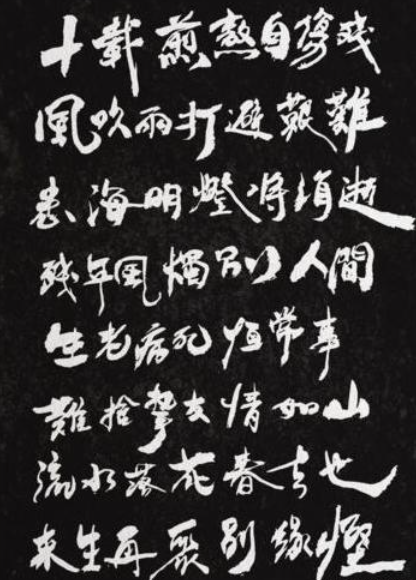 十載煎熬自傷殘
風吹雨打避艱難
苦海明燈將消逝
殘年風燭別人間
生老病死恒常事
難捨摯友情如山
流水落花春去也
來生再聚別緣慳